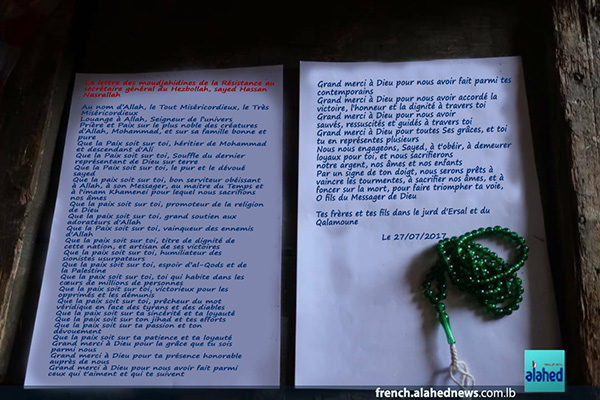 La lettre des moudjahidines de la Résistance au
secrétaire général du Hezbollah, sayed Hassan
Nasrallah
Au nom d'Allah, le Tout Miséricordieux, le Très
Miséricordieux
Louange à Allah, Seigneur de l'univers
Prière et Paix sur le plus noble des créatures
d'Allah, Mohammad, et sur sa famille bonne et
pure
Que la Paix soit sur toi, héritier de Mohammad
et descendant d'Ali
Que la Paix soit sur toi, Souffle du dernier
représentant de Dieu sur terre
Que la Paix soit sur toi, le pur et le dévoué
sayed
Que la paix soit sur toi, bon serviteur obéissant
à Allah, à son Messager, au maitre du Temps et
à l'imam Khamenei pour lequel nous sacrifions
nos âmes
Que la paix soit sur toi, promoteur de la religion
de Dieu
Que la paix soit sur toi, grand soutien aux
adorateurs d'Allah
Que la paix soit sur toi, vainqueur des ennemis
d'Allah
Que la paix soit sur toi, titre de dignité de
cette nation, et artisan de ses victoires
Que la paix soit sur toi, humiliateur des
sionistes usurpateurs
Que la paix soit sur toi, espoir d'al-Qods et de
la Palestine
Que la paix soit sur toi, toi qui habite dans les
cœurs de millions de personnes
Que la paix soit sur toi, victorieux pour les
opprimés et les démunis
Que la paix soit sur toi, prêcheur du mot
véridique en face des tyrans et des diables
Que la paix soit sur ta sincérité et ta loyauté
Que la paix soit sur ton jihad et tes efforts
Que la paix soit sur ta passion et ton
dévouement
Que la paix soit sur ta patience et ta loyauté
Grand merci à Dieu pour la grâce que tu sois
parmi nous
Grand merci à Dieu pour ta présence honorable
auprès de nous
Grand merci à Dieu pour nous avoir fait parmi
ceux qui t'aiment et qui te suivent
Grand merci à Dieu pour nous avoir fait parmi tes
contemporains
Grand merci à Dieu pour nous avoir accordé la
victoire, l'honneur et la dignité à travers toi
Grand merci à Dieu pour nous avoir
sauvés, ressuscités et guidés à travers toi
Grand merci à Dieu pour toutes Ses grâces, et toi
tu en représentes plusieurs
Nous nous engageons, Sayed, à t'obéir, à demeurer
loyaux pour toi, et nous sacrifierons
notre argent, nos âmes et nos enfants
Par un signe de ton doigt, nous serons prêts à
vaincre les tourmentes, à sacrifier nos âmes, et à
foncer sur la mort, pour faire triompher ta voie,
O fils du Messager de Dieu
Tes frères et tes fils dans le jurd d'Ersal et du
Qalamoune
Le 27/07/2017
alahed
french.alahednews.com.lb